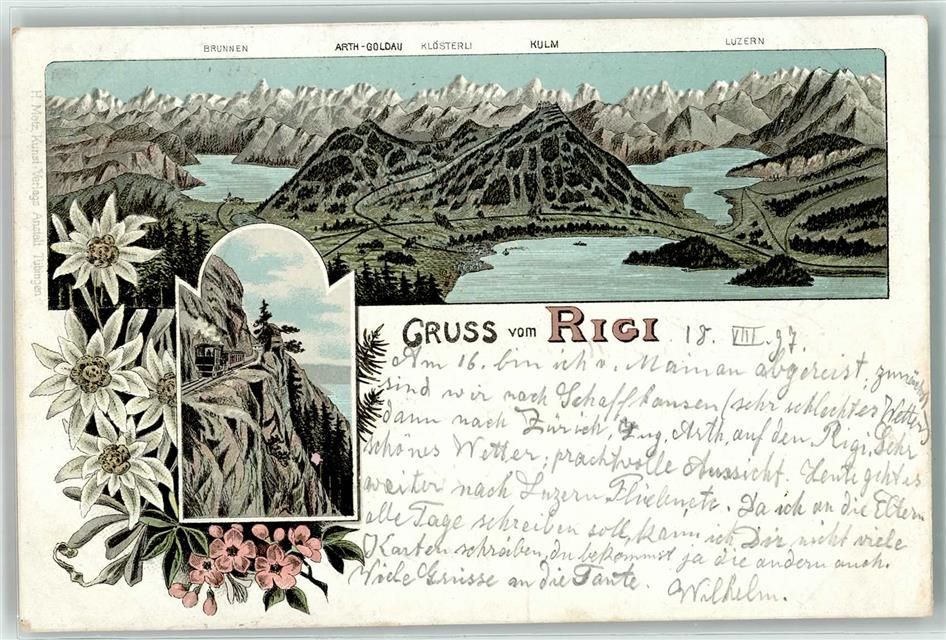 BRUNNEN ARTH-GOLDAU KLÖSTERLI KULM LUZERN
H. Metz, Kunst-Verlags-Anstalt Tübingen
GRUSS vom RIGI 18. VIII. 97.
Am 16. bin ich v. abgereist, zunächst
sind wir nach Schaffhausen (sehr schlechtes Wetter)
dann nach Zürich, Zug, Arth, auf den Rigi, Sehr
schönes Wetter, prachtvolle Aussicht. Heute geht es
weiter nach Luzern Flüelen etc. Da ich an die Eltern
alle Tage schreiben soll, kann ich Dir nicht viele
Karten schreiben, du bekommst ja die andern auch.
Viele Grüsse an die Tante. Wilhelm.